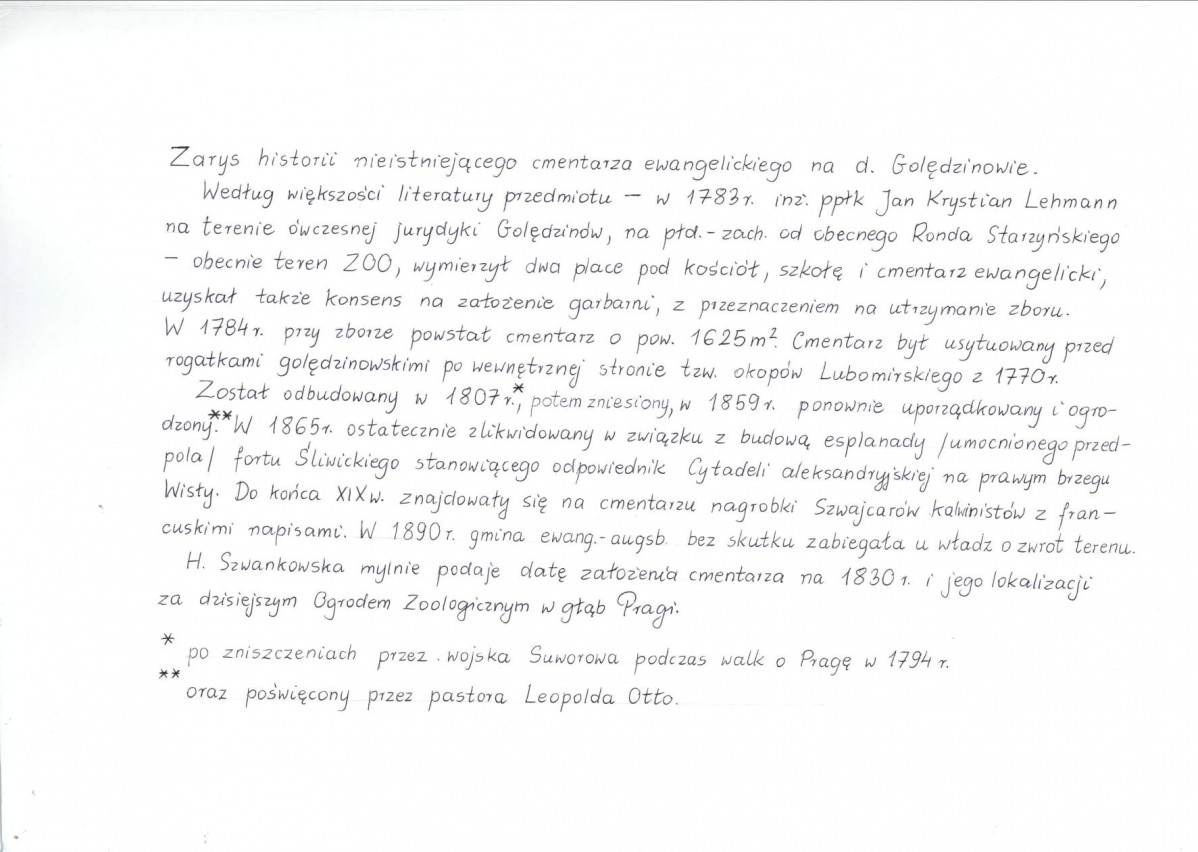 Zarys historii nieistniejącego cmentarza ewangelickiego na d. Golędzinowie.
Według większości literatury przedmiotu – w 1783r. inż. ppłk Jan Krystian Lehmann
na terenie ówczesnej jurydyki Golędzinów, na płd.-zach. od obecnego Ronda Starzyńskiego
– obecnie teren ZOO, wymierzył dwa place pod kościół, szkołę i cmentarz ewangelicki,
uzyskał także konsens na założenie garbarni, z przeznaczeniem na utrzymanie zboru.
W 1784r. przy zborze powstał cmentarz o pow. 1625m². Cmentarz był usytuowany przed
rogatkami golędzinowskimi po wewnętrznej stronie tzw. okopów Lubomirskiego z 1770r.
Został odbudowany w 1807r.*, potem zniesiony, w 1859r. ponownie uporządkowany i ogro-
dzony.** W 1865r. ostatecznie zlikwidowany w związku z budową esplanady /umocnionego przed-
pola/ fortu Śliwickiego stanowiącego odpowiednik Cytadeli aleksandryjskiej na prawym brzegu
Wisły. Do końca XIXw. znajdowały się na cmentarzu nagrobki Szwajcarów kalwinistów z fran-
cuskimi napisami. W 1890r. gmina ewang.-augsb. bez skutku zabiegała u władz o zwrot terenu.
H. Szwankowska mylnie podaje datę założenia cmentarza na 1830r. i jego lokalizacji
za dzisiejszym Ogrodem Zoologicznym w głąb Pragi.
* po zniszczeniach przez wojska Suworowa podczas walk o Pragę w 1794 r.
** oraz poświęcony przez pastora Leopolda Otto.